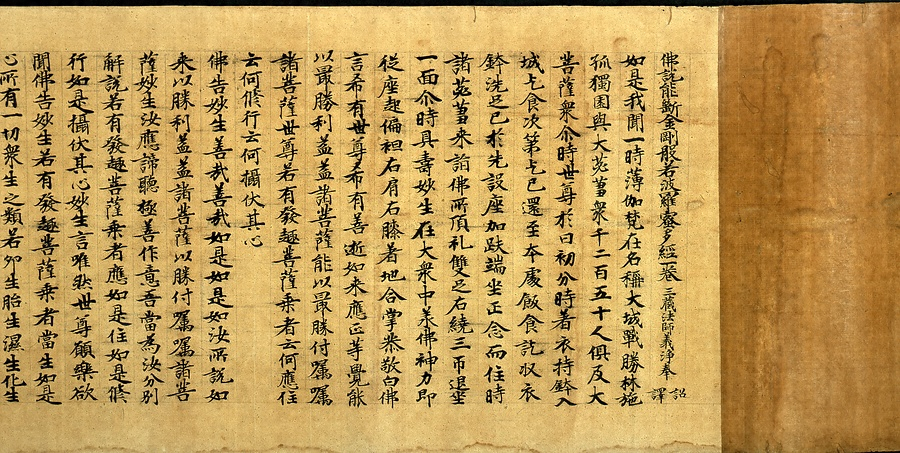 佛說能斷金剛般若波羅蜜多經一卷 三藏法師義淨奉 詔譯
如是我聞一時薄伽梵在名稱大城戰勝林施
孤獨園與大苾蒭衆千二百五十人俱及大
菩薩衆尒時世尊於日初分時著衣持鉢入
城乞食次第乞已還至本處飯食訖収衣
鉢洗足已於先設座加趺端坐正念而住時
諸苾蒭来詣佛所頂礼雙足右繞三帀退坐
一面尒時具壽妙生在大衆中羕佛神力即
從座起偏袒右肩右膝著地合掌恭敬白佛
言希有世尊希有善逝如来應正等覺能
以最勝利益益諸菩薩能以最勝付囑囑
諸菩薩世尊若有發趣菩薩乘者云何應住
云何修行云何攝伏其心
佛告妙生善哉善哉如是如是如汝所說如
来以勝利益益諸菩薩以勝付囑囑諸菩
薩妙生汝應諦聽極善作意吾當為汝分別
解說若有發趣菩薩乘者應如是住如是修
行如是攝伏其心妙生言唯然世尊願樂欲
聞佛告妙生若有發趣菩薩乘者當生如是
心所有一切衆生之類若卵生胎生濕生化生